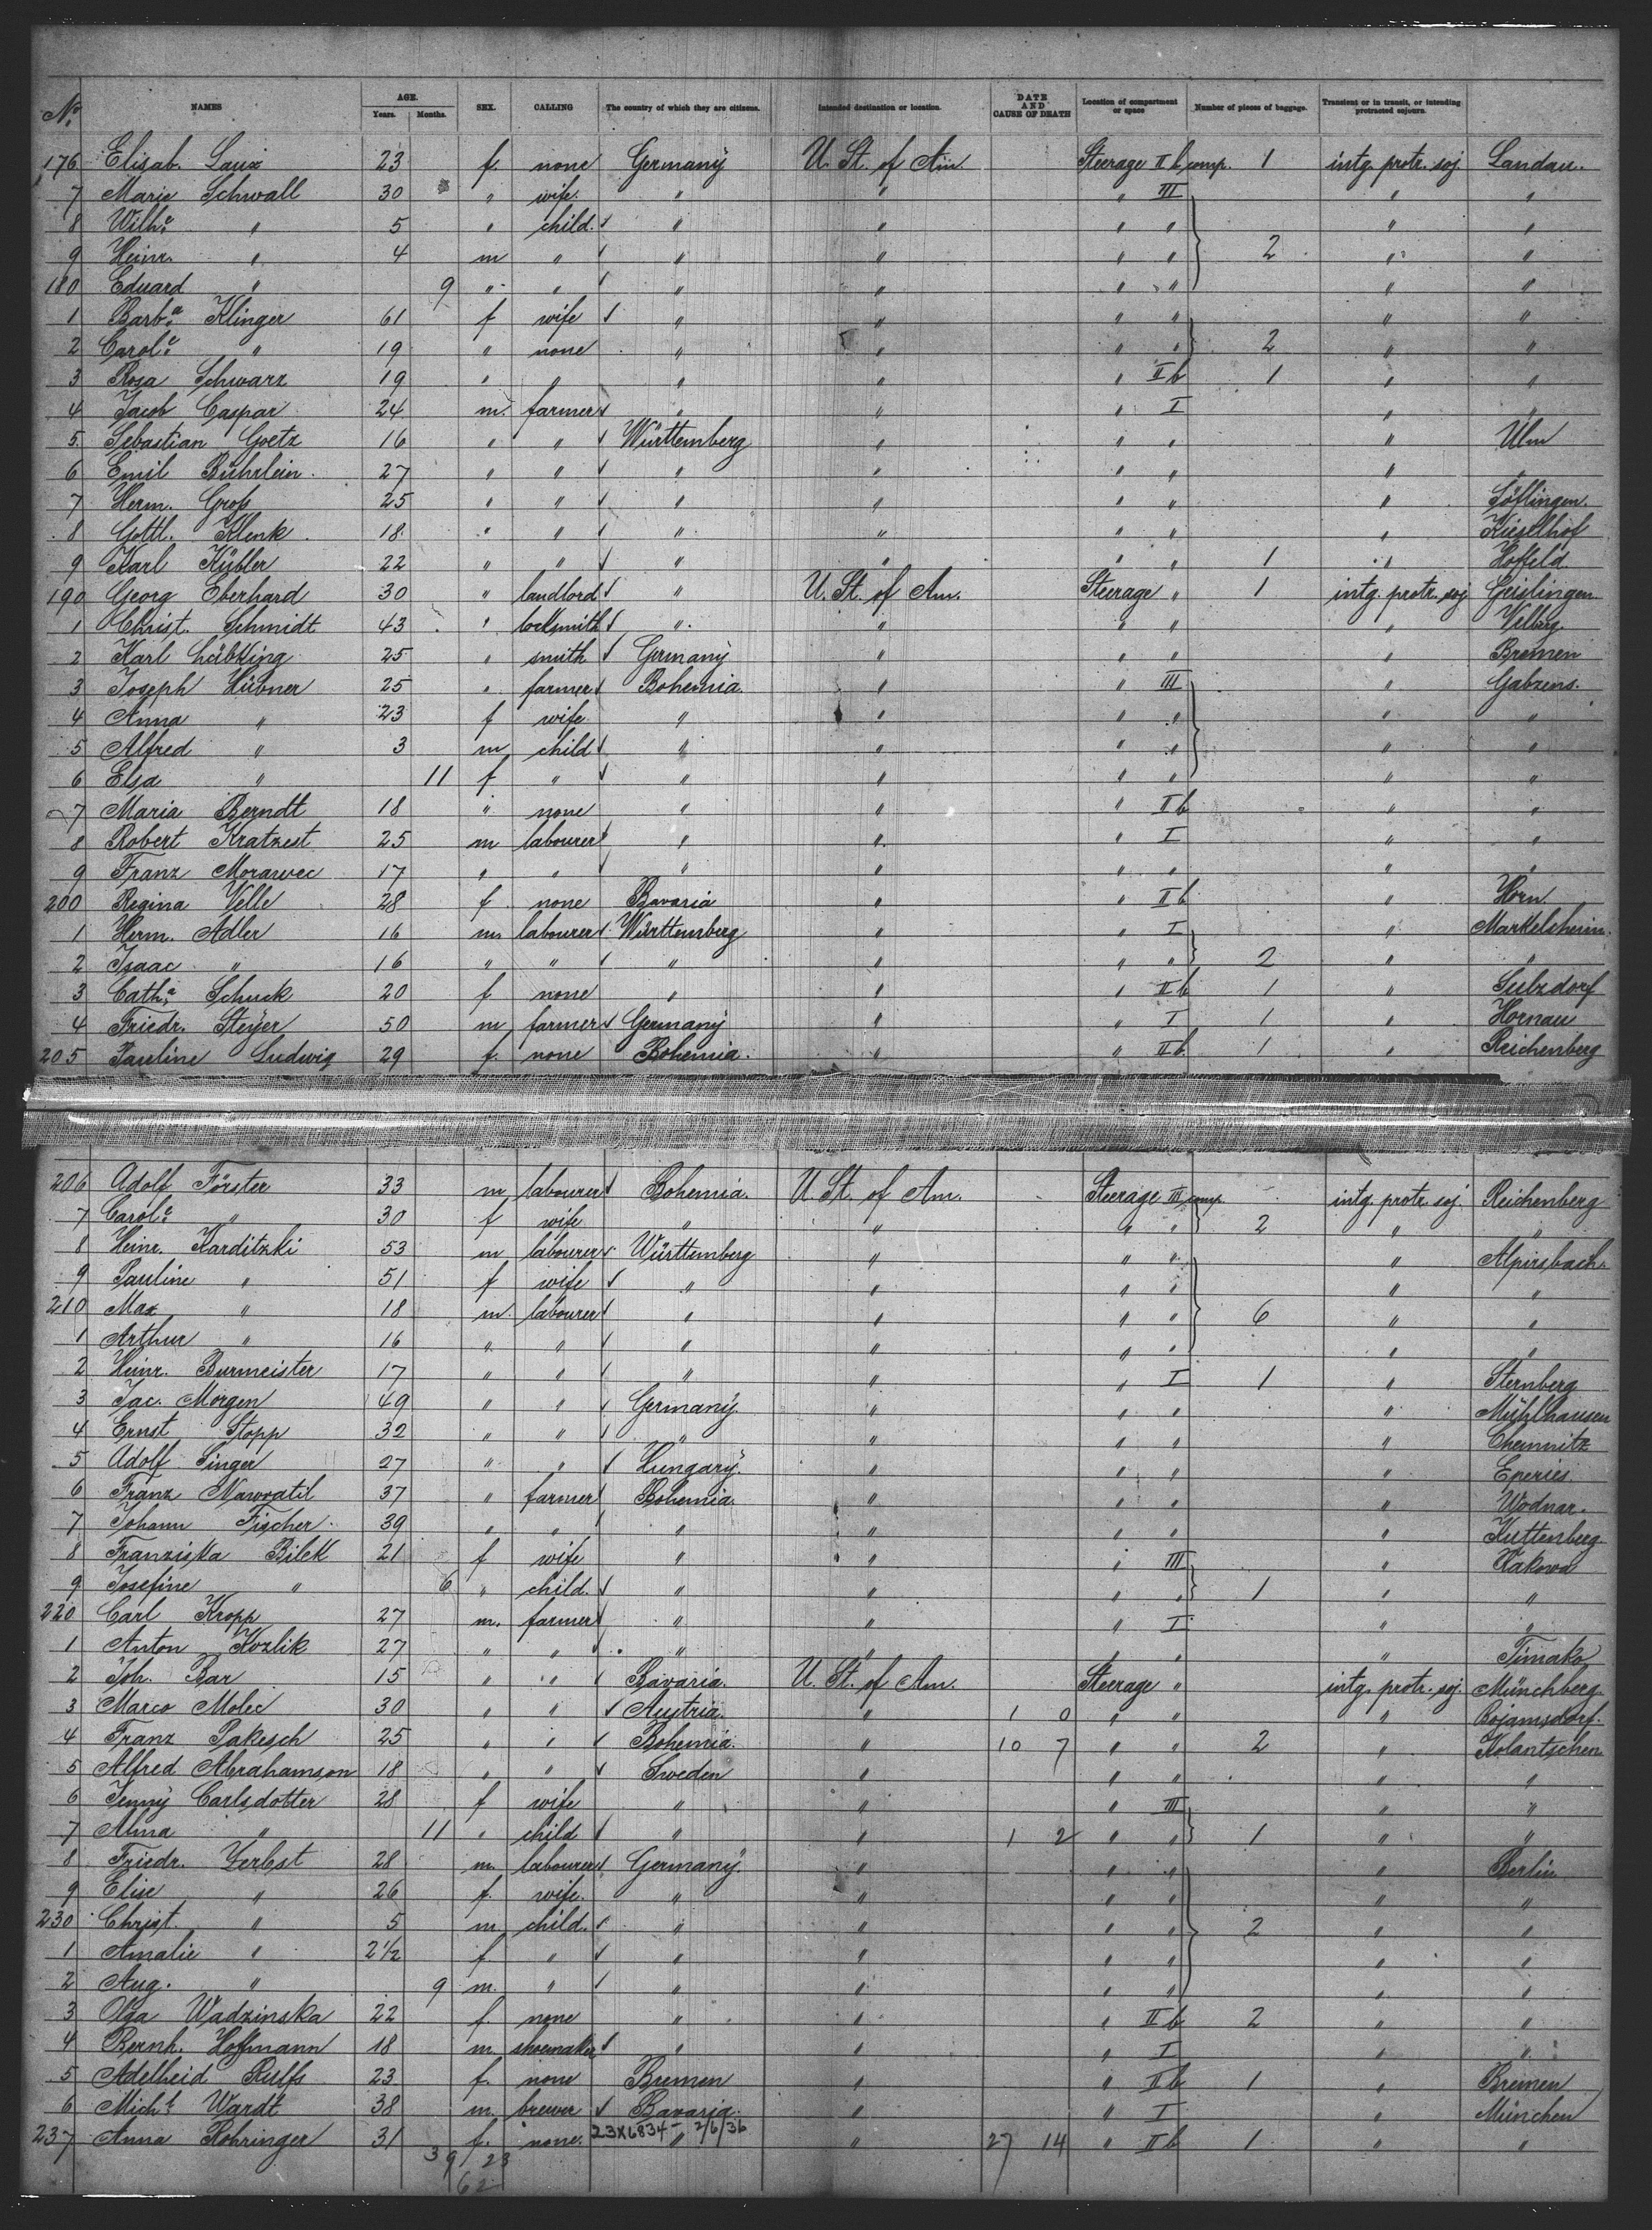 No. NAMES AGE. Years. Months. SEX. CALLING The country of which they are citizens. Intended destination or location. DATE AND CAUSE OF DEATH Location of compartment or space Number of pieces of baggage. Transient or in transit, or intending protracted sojourn.
176 Elisab. Laux 23 f. none Germany U. St. of Am. Steerage II b comp. 1 intg. protr. soj. Landau.
7 Marie Schwall 30 " wife. " " " III " "
8 Wilhe. " 5 " child. " " " " " "
9 Heinr. " 4 m " " " " " 2 " "
180 Eduard " 9 " " " " " " " "
1 Barba. Klinger 61 f wife " " " " " "
2 Carole. " 19 " none " " " " 2 " "
3 Rosa Schwarz 19 " " " " " II b 1 " "
4 Jacob Caspar 24 m. farmer " " " I " "
5. Sebastian Goetz 16 " " Württemberg " " " " Ulm
6 Emil Bührlein. 27 " " " " " " " "
7 Herm. Groß 25 " " " " " " " Söflingen.
8 Gottl. Klenk 18. " " " " " " " Kieselhof
9 Karl Kübler 22 " " " " " " 1 " Hoffeld.
190 Georg Eberhard 30 " landlord " U. St. of Am. Steerage " 1 intg. protr. soj Geislingen
1 Christ. Schmidt 43 " locksmith " " " " " Velberg.
2 Karl Lübking 25 " smith Germany " " " " Bremen
3 Joseph Hübner 25 " farmer Bohemia. " " III " Gabzens.
4 Anna " 23 f wife. " " " " " "
5 Alfred " 3 m child " " " " " "
6 Elsa " 11 f " " " " " " "
7 Maria Berndt 18 " none " " " II b " "
8 Robert Kratzest 25 m labourer " " " I " "
9 Franz Morawec 17 " " " " " " " "
200 Regina Velle 28 f. none Bavaria " " II b " Horn.
1 Herm. Adler 16 m. labourer Württemberg " " I " Markelsheim.
2 Isaac " 16 " " " " " " 2 " "
3 Catha. Schuck 20 f none " " " II b 1 " Sulzdorf
4 Friedr. Steyer 50 m farmer Germany " " I 1 " Hornau
205 Pauline Ludwig 29 f. none Bohemia. " " II b 1 " Reichenberg
206 Adolf Förster 33 m labourer Bohemia. U. St. of Am. Steerage III comp. intg. protr. soj. Reichenberg
7 Carole. " 30 f wife " " " " 2 " "
8 Heinr. Karditzki 53 m labourer Württemberg " " " " Alpirsbach.
9 Pauline " 51 f wife " " " " " "
210 Max " 18 m. labourer " " " " 6 " "
1 Arthur " 16 " " " " " " " "
2 Heinr. Burmeister 17 " " " " " I 1 " Sternberg
3 Jac. Morgen 49 " " Germany. " " " " Mühlhausen
4 Ernst Stopp 32 " " " " " " " Chemnitz
5 Adolf Singer 27 " " Hungary. " " " " Eperies.
6 Franz Nawratil 37 " farmer Bohemia. " " " " Wodnar.
7 Johann Fischer. 39 " " " " " " " Kuttenberg
8 Franziska Bilek 21 f wife " " " III " Kakova
9 Josefine " 6 " child. " " " " 1 " "
220 Carl Kropp 27 m. farmer " " " I " "
1 Anton Kozlik 27 " " " " " " " Timako
2 Joh. Bar 15 " " Bavaria. U. St. of Am. Steerage " intg. protr. soj. Münchberg
3 Marco Molec 30 " " Austria. " 1 0 " " " Cojamsdorf.
4 Franz Pakesch 25 " " Bohemia. " 10 7 " " 2 " Kolantschen
5 Alfred Abrahamson 18 " " Sweden " " " " "
6 Jenny Carlsdotter 28 f wife " " " III " "
7 Alma " 11 " child " " 1 2 " " 1 " "
8 Friedr. Zerbst 28 m. labourer Germany. " " " " Berlin
9 Elise " 26 f. wife. " " " " " "
230 Christ. " 5 m child. " " " " 2 " "
1 Amalie " 2 1/2 f. " " " " " " "
2 Aug. " 9 m. " " " " " " "
3 Olga Wadzinska 22 f. none " " " II b 2 " "
4 Bernh. Hoffmann 18 m. shoemaker " " " I " "
5 Adelheid Rulfs 23 f. none Bremen " " II b 1 " Bremen
6 Michl. Wardt 38 m. brewer Bavaria. " " I " München
237 Anna Rohringer 31 f. none. 23X6834 - 2/6/36 " " 27 14 " II b 1 " "
39 23
62